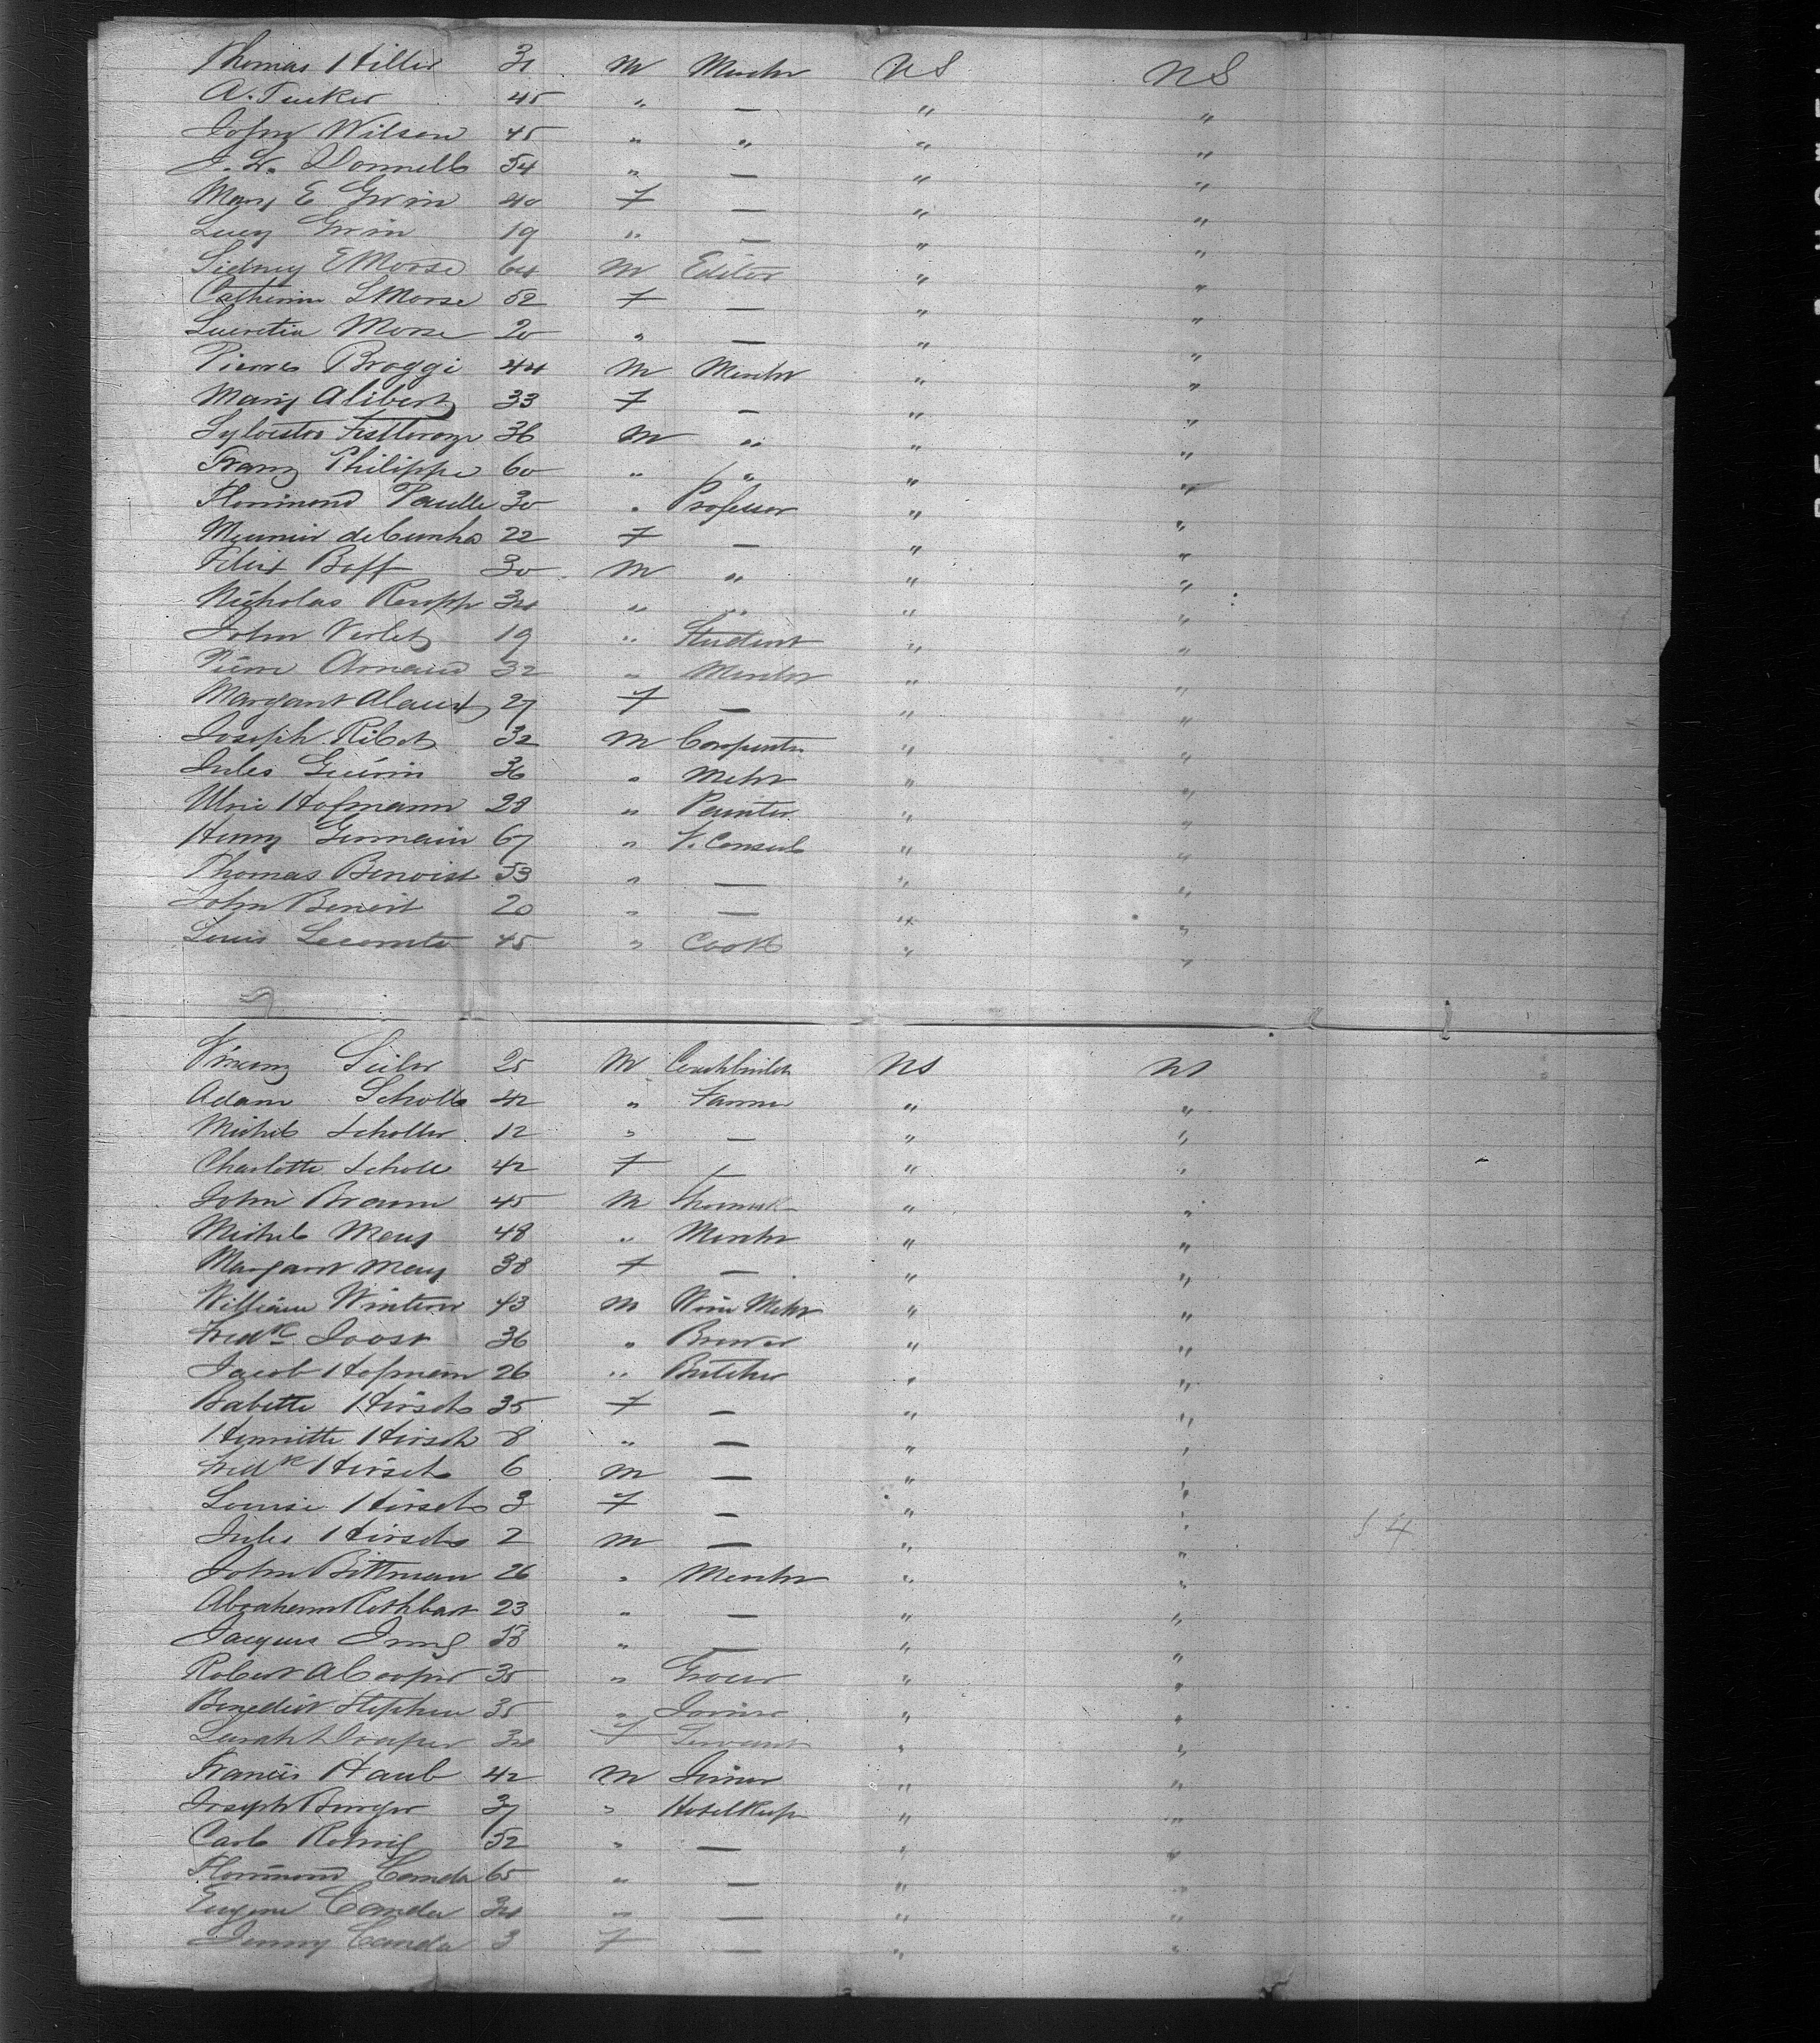 Thomas Hiller 31 M Merchr US US
A. Tucker 45 " — " "
John Wilson 45 " " " "
J. W. Donnell 54 " — " "
Mary E Gwin 40 F — " "
Lucy Gwin 19 " — " "
Sidney E Morse 64 M Editor " "
Catherine L Morse 52 F — " "
Lucretia Morse 20 " — " "
Pierre Broggi 44 M Merchr " "
Mary Alibert 33 F — " "
Sylvestre 36 M " " "
Franz Philippe 60 " " " "
Florimond Paulle 30 " Professor " "
Meunier de Cunha 22 F — " "
Felix Boff 30 M " " "
Nicholas Rempp 34 " " " "
John Verlet 19 " Student " "
Pierre Arnaud 32 " Merchr " "
Margaret 27 F — " "
Joseph Ribot 32 M Carpenter " "
Jules Guérin 36 " Mchr " "
Ulric Hofmann 28 " Painter " "
Henry Germain 67 " V. Consul " "
Thomas Benoist 53 " — " "
John Benoit 20 " — " "
Louis Lecomte 45 " Cook " "
Franz 25 M Coachbuilder US US
Adam Scholl 42 " Farmer " "
Michel Scholler 12 " — " "
Charlotte Scholl 42 F — " "
John Braun 45 M " "
Michel Mery 48 " Merchr " "
Margaret Mery 38 F — " "
William Winter 43 M Wine Mchr " "
Fredk Joost 36 " Brewer " "
Jacob Hofmann 26 " Butcher " "
Babette Hirsch 35 F — " "
Henriette Hirsch 8 " — " "
Fredk Hirsch 6 M — " "
Louise Hirsch 3 F — " "
Jules Hirsch 2 M — " " 54
John Bittman 26 " Merchr " "
Abraham Rothbart 23 " — " "
Jacques Jung 58 " — " "
Robert A Cooper 35 " Grocer " "
Benedict Stephen 35 " Joiner " "
Sarah Draper 34 F Servant " "
Francis Haub 42 M Joiner " "
Joseph Burger 37 " Hotelkeep " "
Carl 52 " — " "
Florimond Canda 65 " — " "
Eugene Canda 34 " — " "
Jenny Canda 3 F — " "